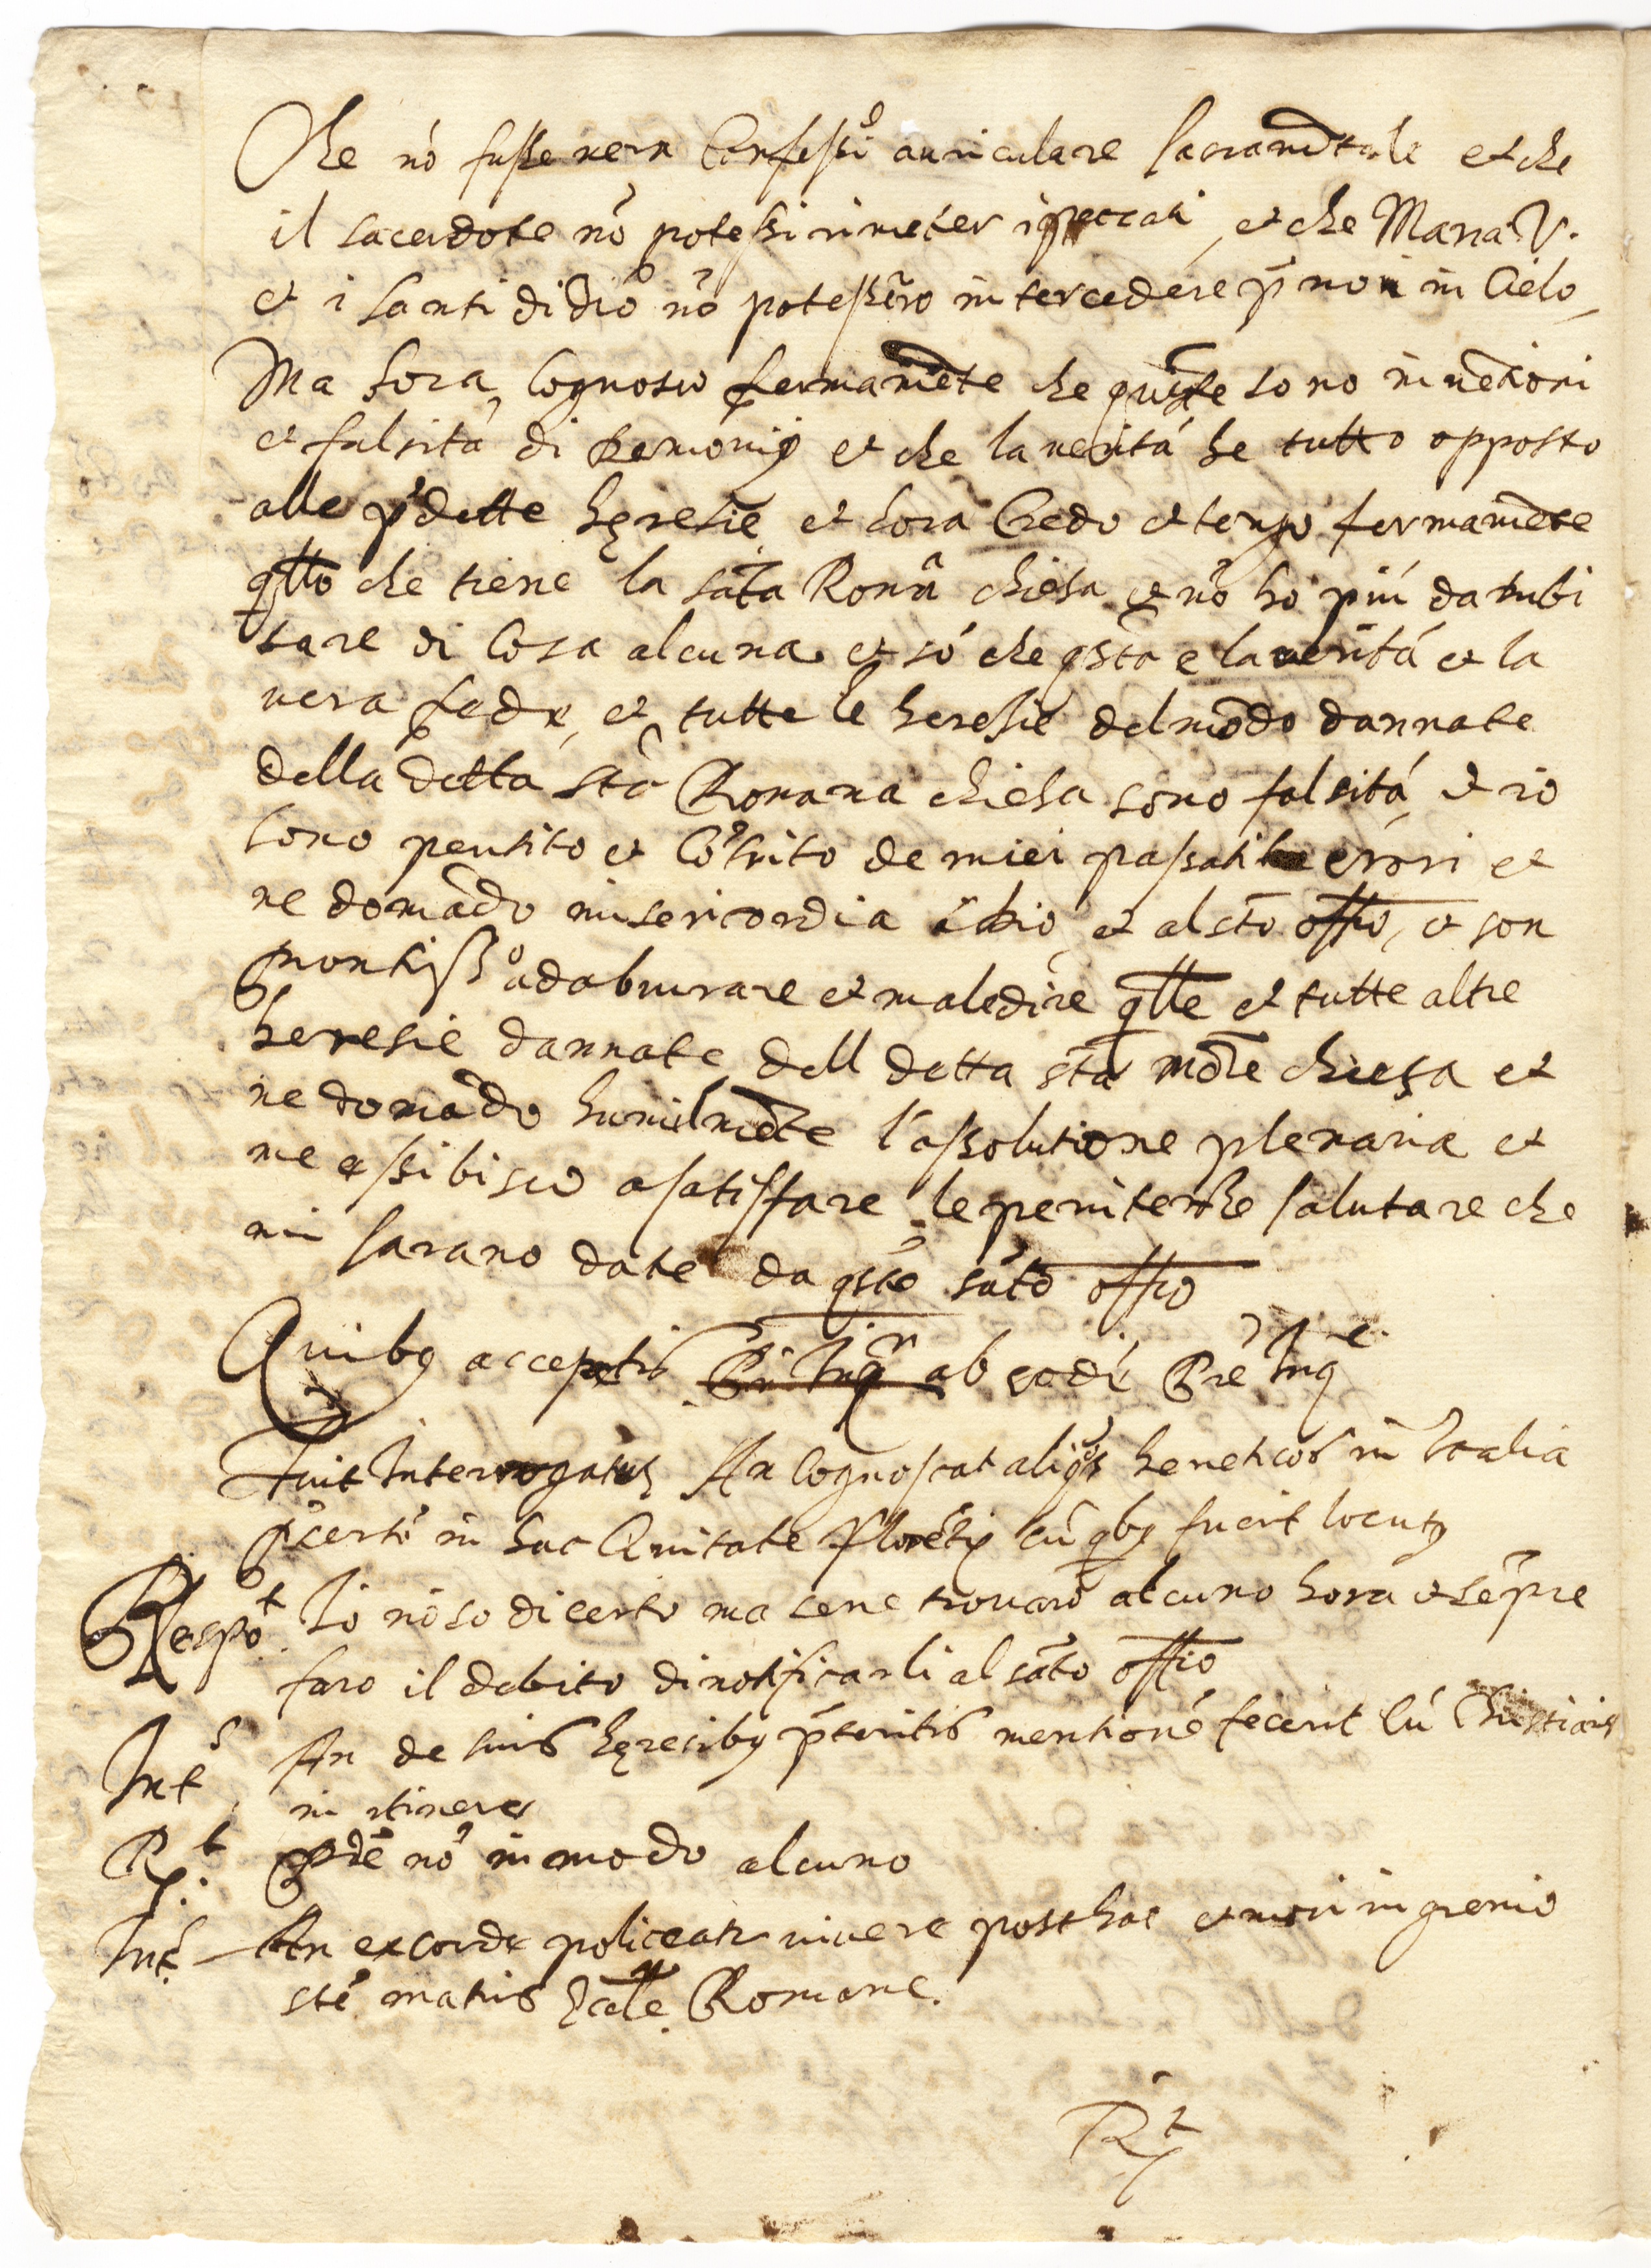 Che nõ fusse vera Confessiõ auriculare sacramẽtale et che
il sacerdote nõ potessi rimeter i peccati, et che Maria V.
et i santi di dio nõ potessero intercedere p̃ noi in Cielo,
Ma hora, Cognosco fermamẽte che queste sono invẽtioni
et falsità di Demonij et che la verità he tutto opposto
alle p̃dette hęresie et hora Credo et tengo fermamẽte
q̃llo che tiene la sãta Romã chiesa et nõ hò più da dubi
tare di Cosa alcuna et sò che q̃sta e la verità et la
vera fede, et tutte le heresie del mõdo dannate
della detta Stã Romana chiesa sono falsità, et io
sono pentito et Cõtrito de miei passati errori et
ne domãdo misericordia à dio, et al stõ offio, et son
prontiss.o ad abiurare et maledire q̃lle et tutte altre
heresie dannate dell detta stã mõre chiesa et
ne domãdo humilmẽte l'assolutione plenaria et
me essibisco a satisffare le penitentie salutare che
mi sarano date da q̃sto sãto offio
Quibq acceptis ab eodẽ Pre Inq
Fuit Interrogatus An Cognoscat aliq̃s hereticos in Italia
p̃certĩ in hac Civitate Florẽtię cũ qbq fuerit locutq
Respot Io nõ so di certo ma se ne trovarò alcuno hora et sẽpre
faro il debito di notificarli al sãto offio
Int.s An de suis hęresibq p̃teritis mentionẽ fecerit Cũ Christianis
in itinere
R.t P̃dẽ nõ in modo alcuno
Int.s An ex corde policeatr vivere post hac et mori in gremio
stẽ matris Ecclẽ Romane.
R.t